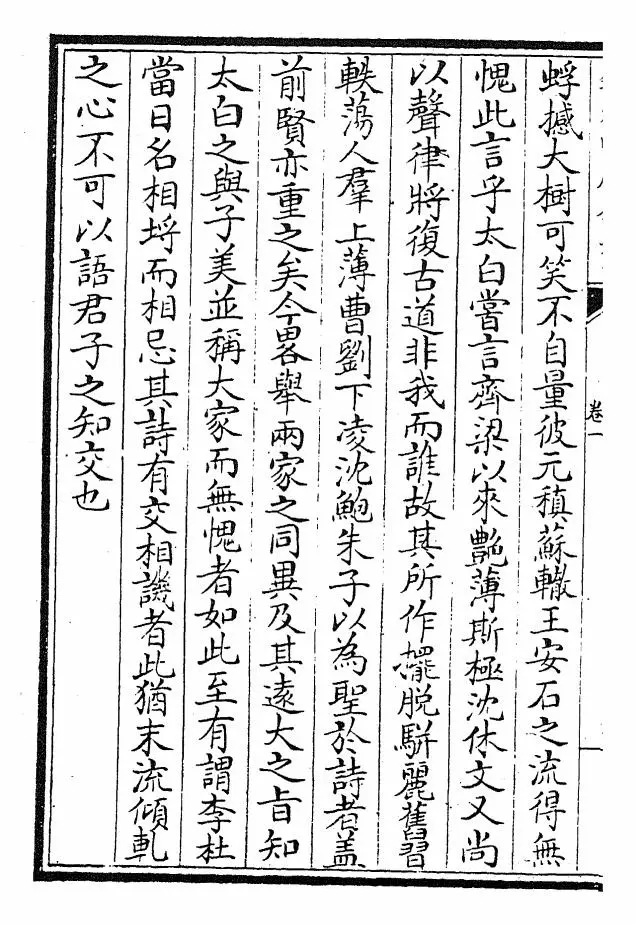 卷一
蜉撼大樹可笑不自量彼元稹蘇轍王安石之流得無
愧此言乎太白嘗言齊梁以來艷薄斯極沈休文又尚
以聲律將復古道非我而誰故其所作擺脫駢麗舊習
軼蕩人羣上薄曹劉下凌沈鮑朱子以為聖於詩者盖
前賢亦重之矣今畧舉兩家之同異及其遠大之旨知
太白之與子美並稱大家而無愧者如此至有謂李杜
當日名相埒而相忌其詩有交相譏者此猶末流傾軋
之心不可以語君子之知交也